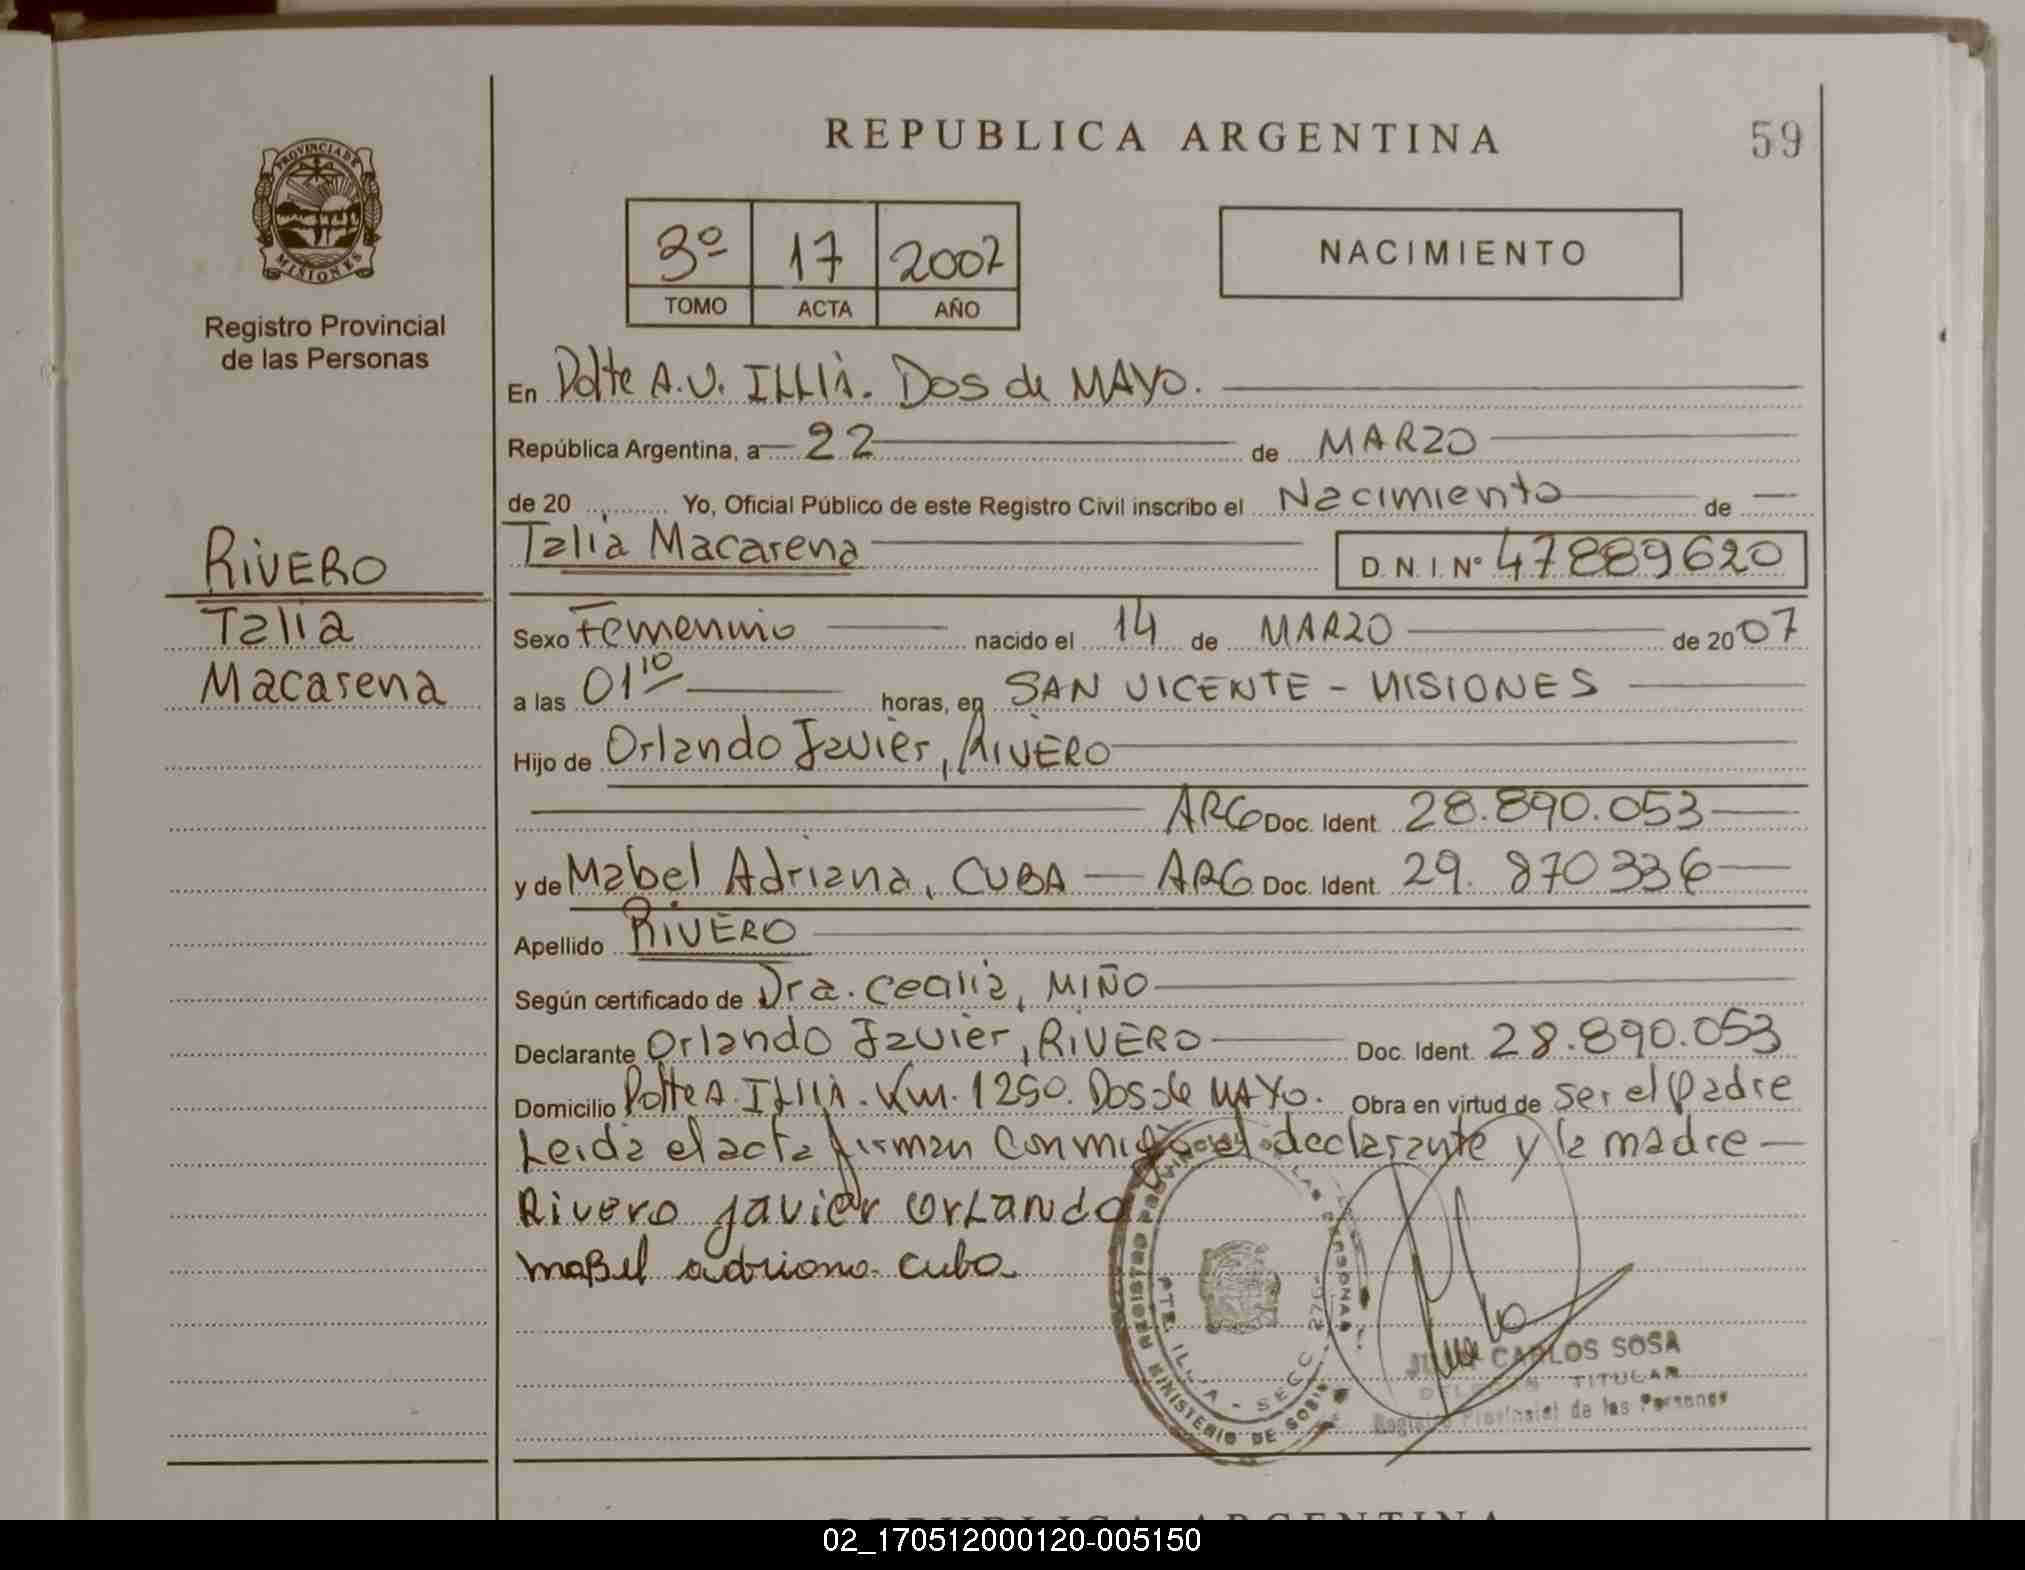 REPUBLICA ARGENTINA
59
PROVINCIA DE
MISIONES
Registro Provincial
de las Personas
3º 17 2007
TOMO ACTA AÑO
NACIMIENTO
En Pdte A.U. ILLIA. Dos de MAYO.
República Argentina, a 22 de MARZO
de 20 Yo, Oficial Público de este Registro Civil inscribo el Nacimiento de
Talia Macarena D.N.I. Nº 47889620
RIVERO
Talia
Macarena
Sexo Femenino nacido el 14 de MARZO de 2007
a las 01 10 horas, en SAN VICENTE - MISIONES
Hijo de Orlando Javier, RIVERO
ARG Doc. Ident. 28.890.053
y de Mabel Adriana, CUBA ARG Doc. Ident. 29.870336
Apellido RIVERO
Según certificado de Dra. Cecilia, MIÑO
Declarante Orlando Javier, RIVERO Doc. Ident. 28.890.053
Domicilio Pdte A. ILLIA. Km. 1250. Dos de MAYO. Obra en virtud de ser el padre
Leida el acta firman conmigo el declarante y la madre
Rivero Javier Orlando
Mabel adriana cuba
REGISTRO PROVINCIAL DE LAS PERSONAS
PTE. ILLIA - SECC.
MINISTERIO DE GOBIERNO
CARLOS SOSA
TITULAR
Registro Provincial de las Personas
REPUBLICA ARGENTINA
02_170512000120-005150